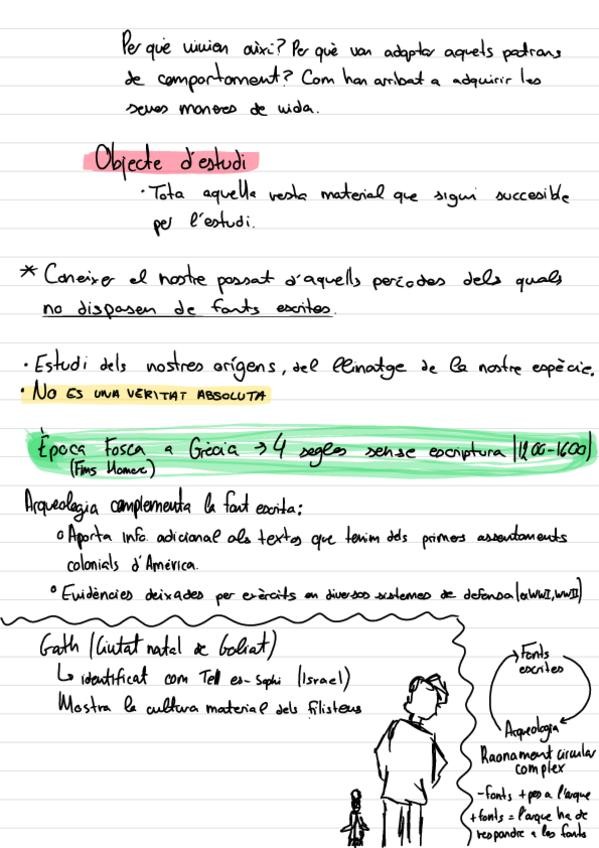 Per què vivien així? Per què van adoptar aquells patrons
de comportament? Com han arribat a adquirir les
seves maneres de vida.
Objecte d'estudi
· Tota aquella resta material que sigui succesible
per l'estudi.
* Coneixer el nostre passat d'aquells períodes dels quals
no disposen de fonts escrites.
· Estudi dels nostres orígens, del llinatge de la nostre espècie.
· NO ES UNA VERITAT ABSOLUTA
Època Fosca a Grècia → 4 segles sense escriptura (1200-1600)
(Fins Homer)
Arqueologia complementa la font escrita:
o Aporta info. adicional als textos que tenim dels primers assentaments
colonials d'Amèrica.
o Evidències deixades per exèrcits en diversos sistemes de defensa (ex WWI, WWII)
Gath (Ciutat natal de Goliat)
↳ identificat com Tell es-Saphi (Israel)
Mostra la cultura material dels filisteus
Fonts
escrites
Arqueologia
Raonament circular
complex
- fonts + pes a l'arque
+ fonts = l'arque ha de
respondre a les fonts